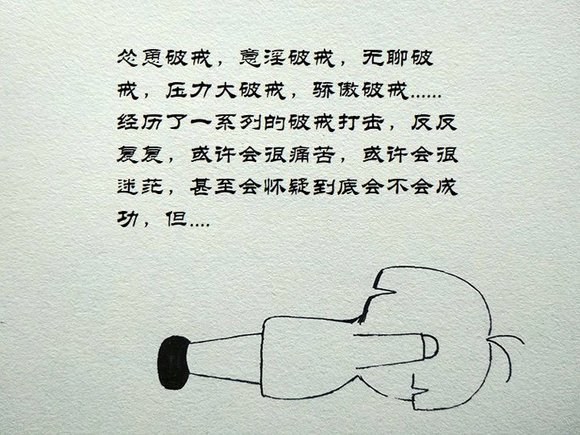 怂恿破戒，意淫破戒，无聊破
戒，压力大破戒，骄傲破戒......
经历了一系列的破戒打击，反反
复复，或许会很痛苦，或许会很
迷茫，甚至会怀疑到底会不会成
功，但....